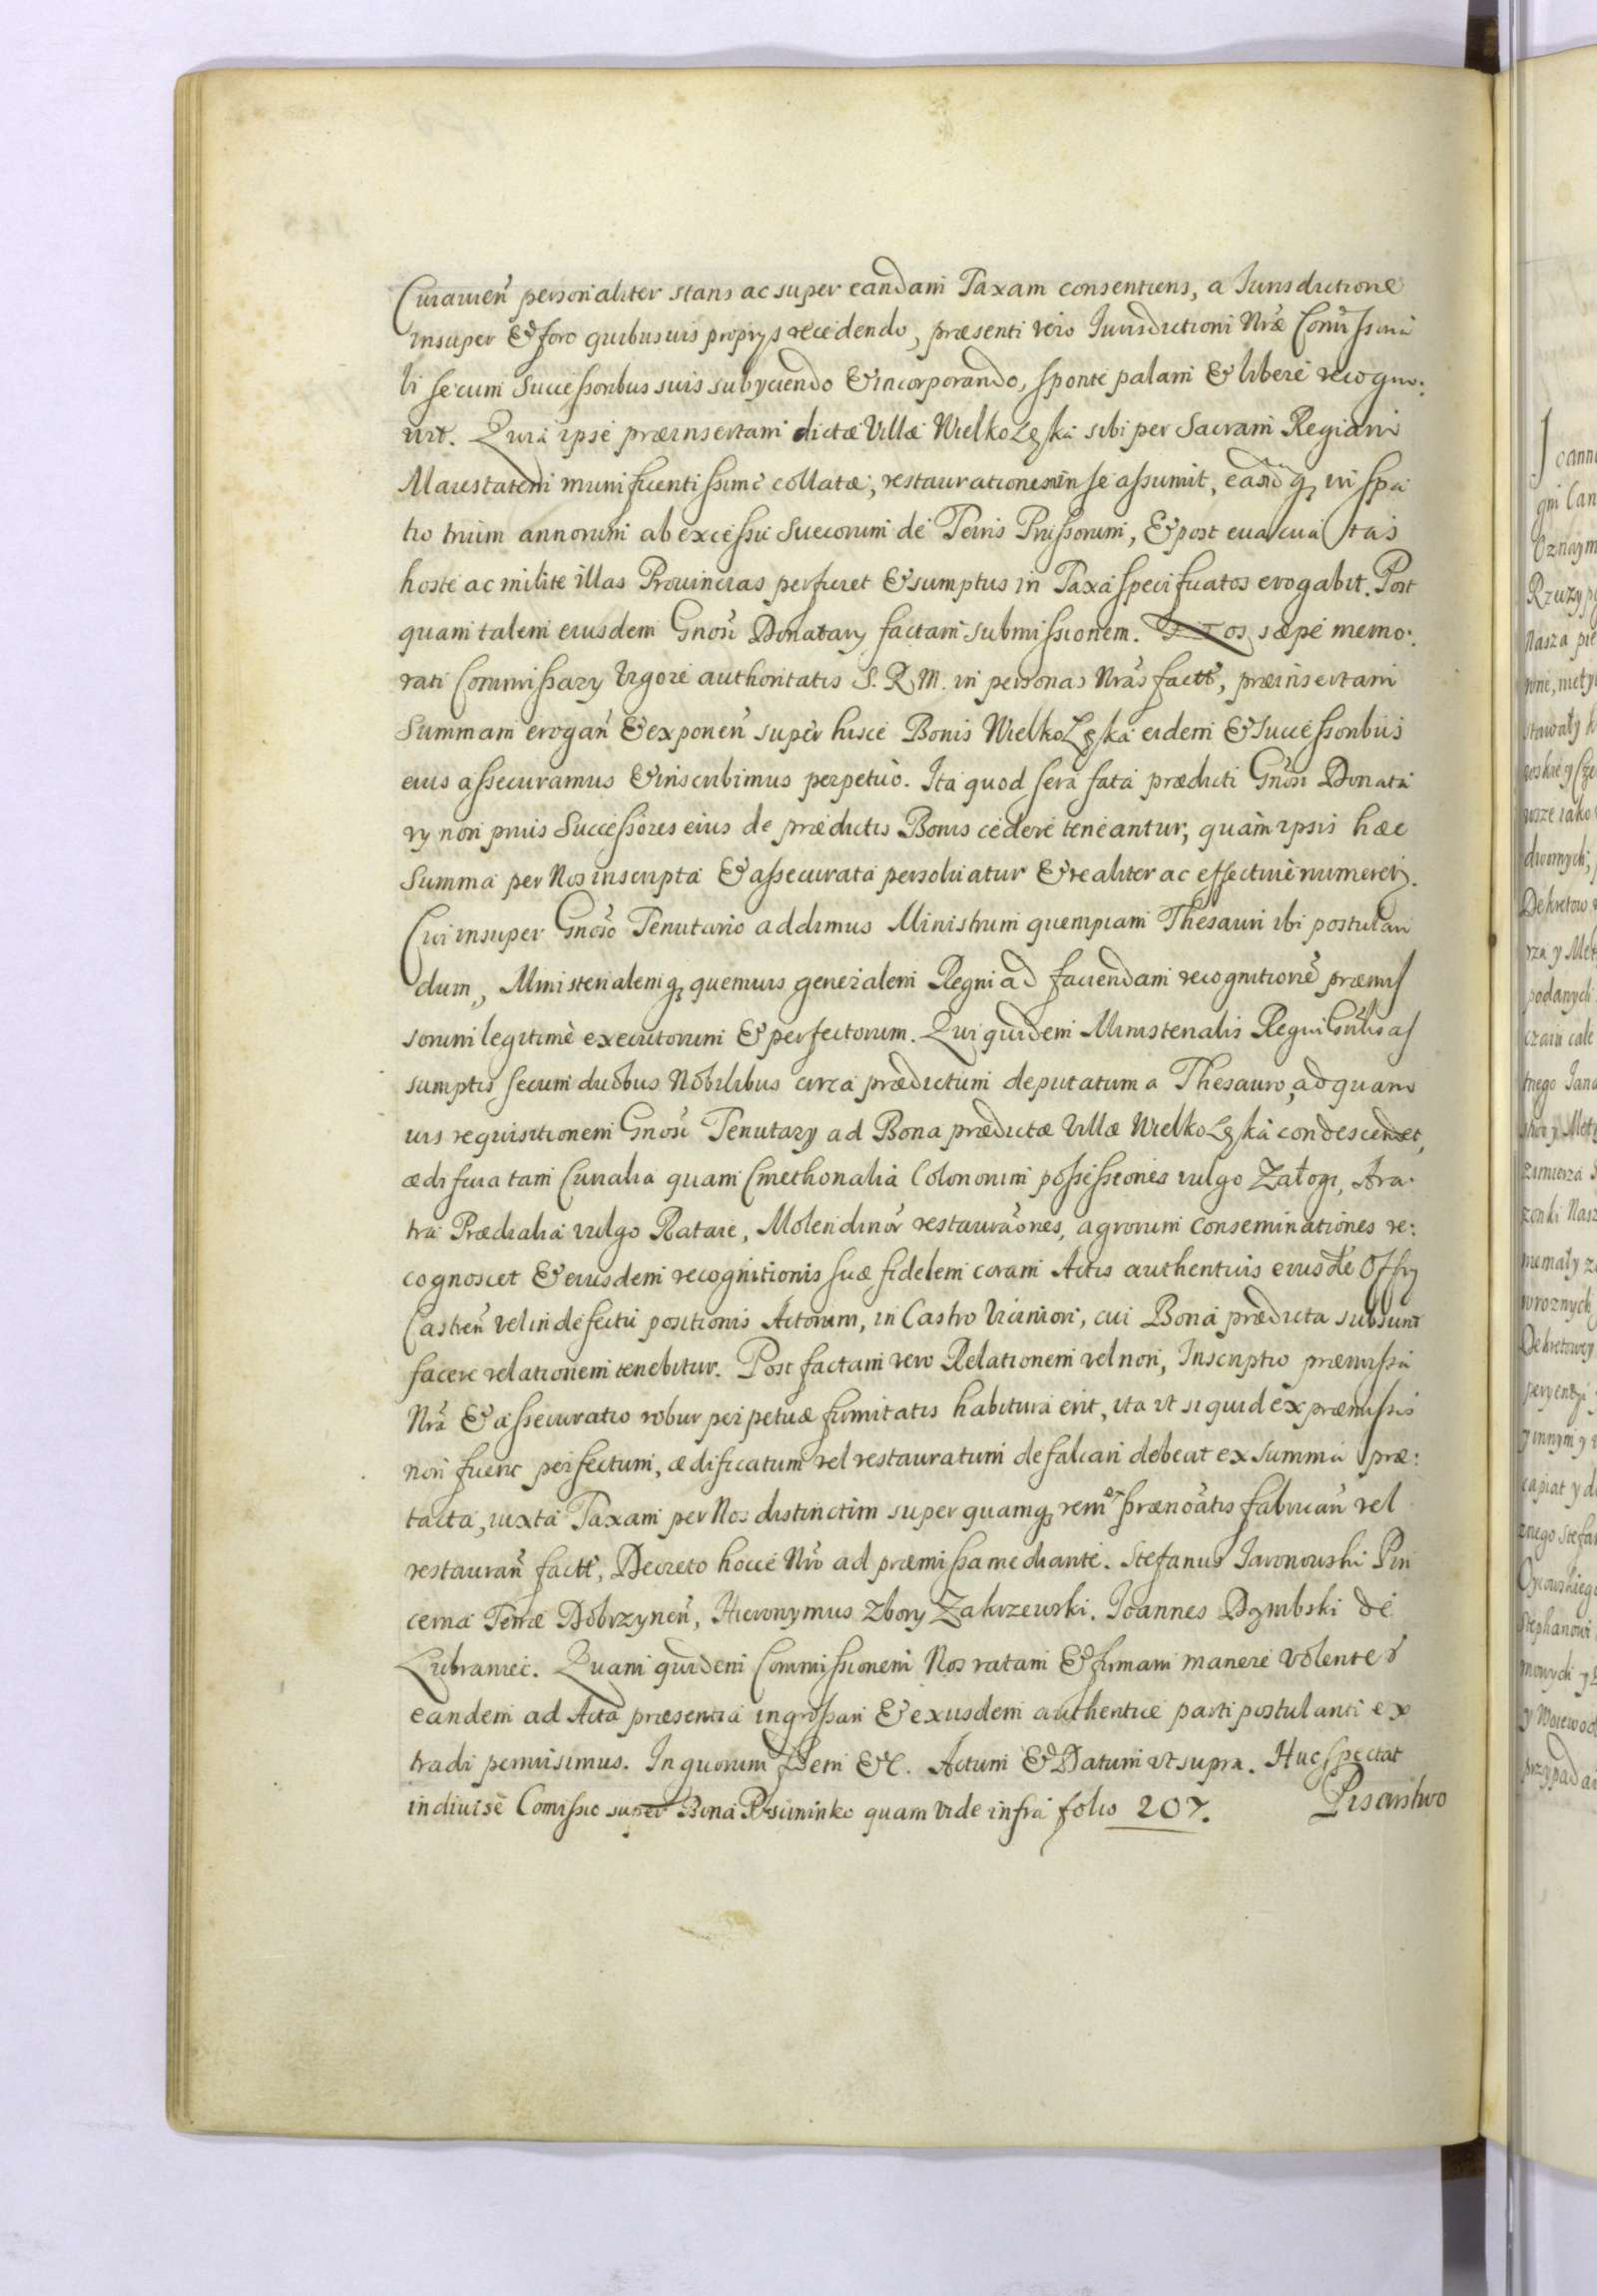 Curavień personaliter stans ac super eandam Taxam consentiens, a Iurisdictione
insuper & foro quibusuis proprys recedendo, præsenti vero Iurisdictioni Nræ Comissiria
li se cum Successoribus suis subyciendo & incorporando, sponte palam & libere recogno:
uit. Quia ipse præinsertam dictæ Villæ WielkoLęska sibi per Sacram Regiam
Maiestatem munificentissime collatæ, restaurationem in se assumit, eamq; in spa
tio trium annorum ab excessu Suecorum de Terris Prussorum, & post euacuatas
hoste ac milite illas Prouincias perficiet & sumptus in Taxa specificatos erogabit. Post
quam talem eiusdem Gnosi Donatary factam submissionem. Nos sæpe memo:
rati Commissary vigore authoritatis S. R. M. in personas Nras factt, præinsertam
Summam erogań & exponeń super hisce Bonis WielkoLęska eidem & Successoribus
eius assecuramus & inscribimus perpetuo. Ita quod sera fata prædicti Gnosi Donata
ry non prius Successores eius de prædictis Bonis cedere teneantur, quam ipsis hæc
Summa per Nos inscripta & assecurata persoluatur & realiter ac effectiue numeret.
Cui insuper Gnoso Tenutario addimus Ministrum quempiam Thesauri ibi postulan
dum, Ministerialemq; quemuis generalem Regni ad faciendam recognitione præmis
sorum legitime executorum & perfectorum. Qui quidem Ministerialis Regni Gnlis as
sumptis secum duobus Nobilibus circa prædictum deputatum a Thesauro, ad quam
uis requisitionem Gnosi Tenutary ad Bona prædictæ Villæ WielkoLęska condescendet,
ædificia tam Curialia quam Cmethonalia Colonorum possessiones vulgo Załogi, Ara:
tra Prædialia vulgo Rataie, Molendinor restauraones, agrorum conseminationes re:
cognoscet & eiusdem recognitionis suæ fidelem coram Actis authenticis eiusde Offy
Castreń vel in defectu positionis Actorum, in Castro Viciniori, cui Bona prædicta subsunt
facere relationem tenebitur. Post factam vero Relationem vel non, Inscriptio præmissa
Nra & assecuratio robur perpetuæ firmitatis habitura erit, ita vt si quid ex præmissis
non fuerit perfectum, ædificatum vel restauratum defalcari debeat ex summa præ:
tacta, iuxta Taxam per Nos distinctim super quamq; rem ex prænoatis fabricań vel
restaurań factt, Decreto hocce Nro ad præmissa mediante. Stefanus Iaronowski Pin
cerna Terræ Dobrzyneń, Hieronymus Zbory Zakrzewski. Ioannes Dąmbski de
Lubraniec. Quam quidem Commissionem Nos ratam & firmam manere volentes
eandem ad Acta præsentia ingrossari & ex iisdem authentice parti postulanti ex
tradi permisimus. In quorum fidem &c. Actum & Datum vt supra. Huc spectat
indiuise Comissio super Bona Psuninko quam vide infra folio 207.
Pisarstwo